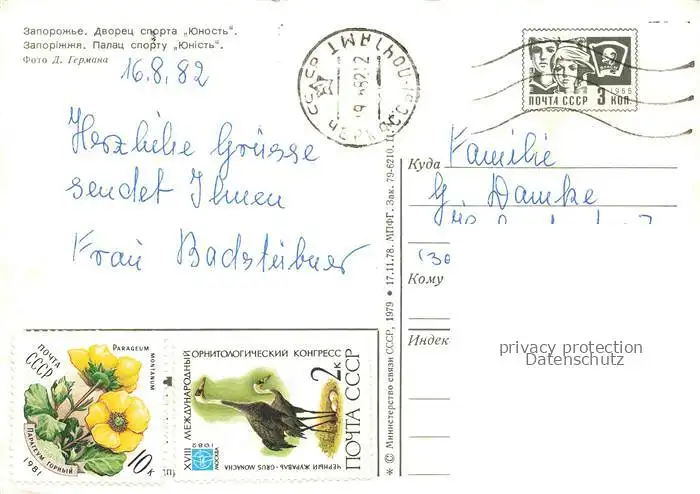 Запорожье. Дворец спорта „Юность“.
Запоріжжя. Палац спорту „Юність“.
Фото Д. Германа
16.8.82
Herzliche Grüsse
sendet Ihnen
Frau Badstübner
СССР
ПОЧТАМТ
ПОЧТА СССР 3 КОП.
1966
Куда Familie
G. Damke
Кому
Индекс
privacy protection
Datenschutz
* © Министерство связи СССР, 1979 • 17.11.78. МПФГ. Зак. 79-6210.
ПОЧТА
СССР
PARAGEUM
MONTANUM
ПАРАГЕУМ ГОРНЫЙ
1981
10 к
XVIII МЕЖДУНАРОДНЫЙ
ОРНИТОЛОГИЧЕСКИЙ КОНГРЕСС
МОСКВА
1982
ЧЕРНЫЙ ЖУРАВЛЬ-GRUS MONACHA
2 к
ПОЧТА СССР